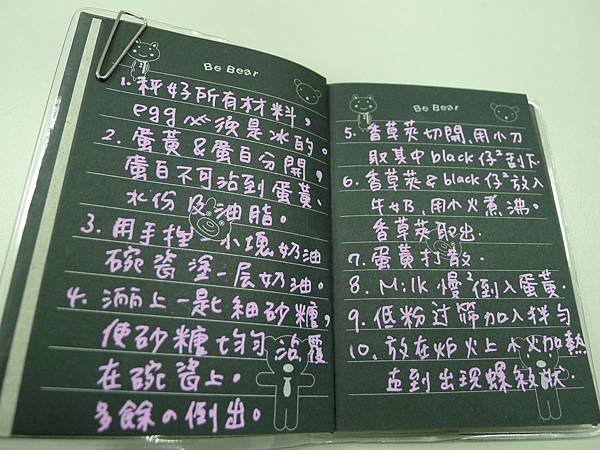 Be Bear
1. 秤好所有材料,
egg 必須是冰的。
2. 蛋黃&蛋白分開,
蛋白不可沾到蛋黃、
水份及油脂。
3. 用手捏一小塊奶油
碗瓷塗一層奶油。
4. 灑上一匙細砂糖,
使砂糖均勻沾覆
在碗瓷上。
多餘の倒出。
Be Bear
5. 香草莢切開,用小刀
取其中black仔²刮下
6. 香草莢&black仔²放入
牛奶,用小火煮沸。
香草莢取出.
7. 蛋黃打散.
8. Milk慢²倒入蛋黃.
9. 低粉过篩加入拌勻
10. 放在炉火上小火加熱
直到出現螺紋狀.